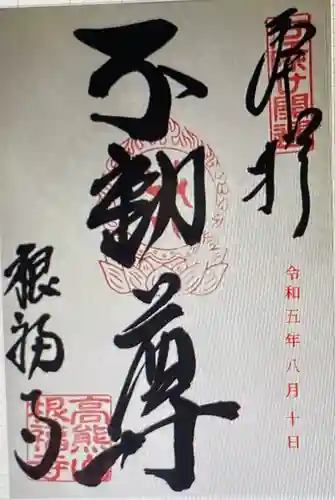 奉拝
厄除け開運
令和五年八月十日
不動尊
根福寺
高熊山
根福寺